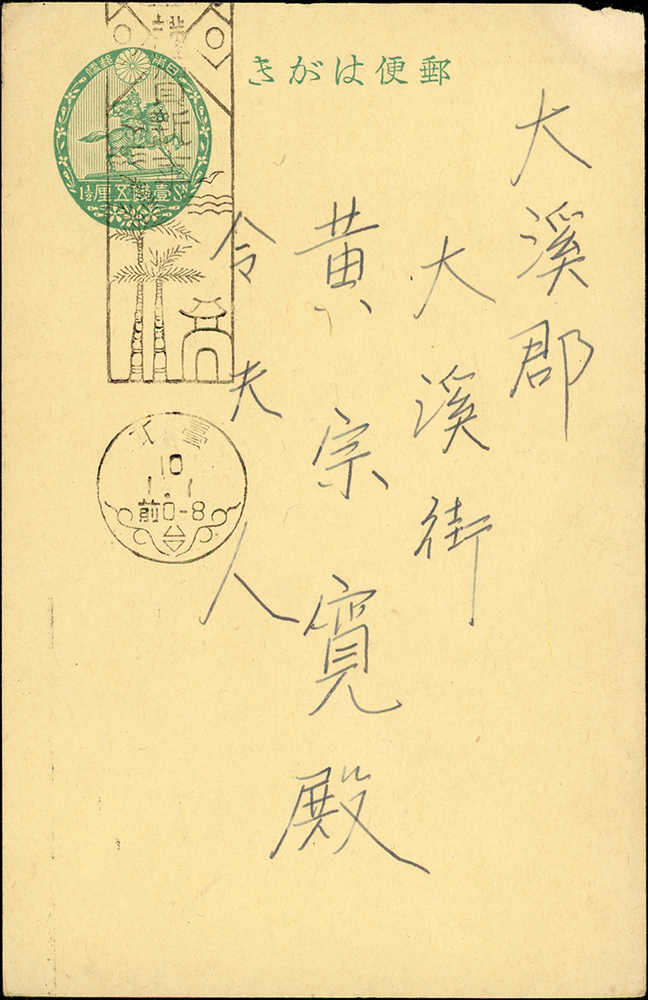 郵便はがき
大溪郡
大溪街
黄宗寛殿
令夫人
日本郵便
壹錢五厘
1½ SN
臺北
10
1.1
前0-8
台